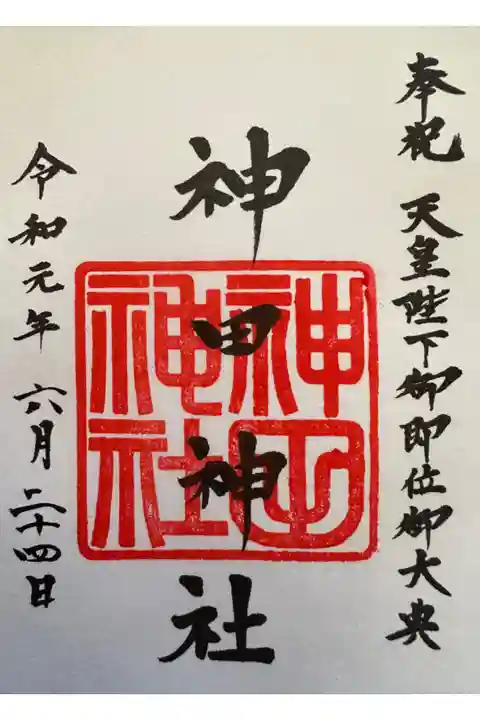 奉祝 天皇陛下御即位御大典
神田神社
令和元年 六月二十四日
神田
神社